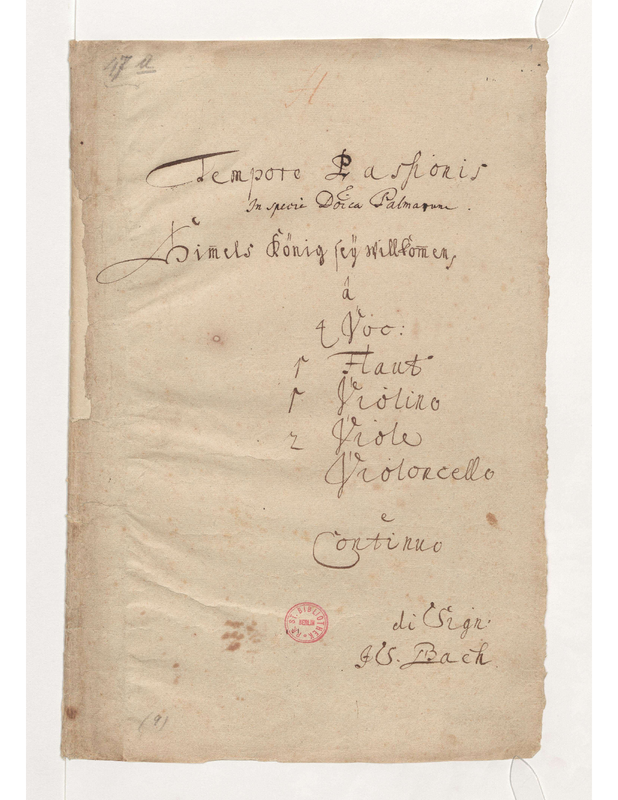 47 a
Tempore Passionis
In specie Doīca Palmarum.
Him̄els König sey willkom̄en,
à
4 Voc:
1 Flaut
1 Violino
2 Viole
Violoncello
e
Continuo
di Sign:
JS. Bach
BIBLIOTHEK
BERLIN
(9)